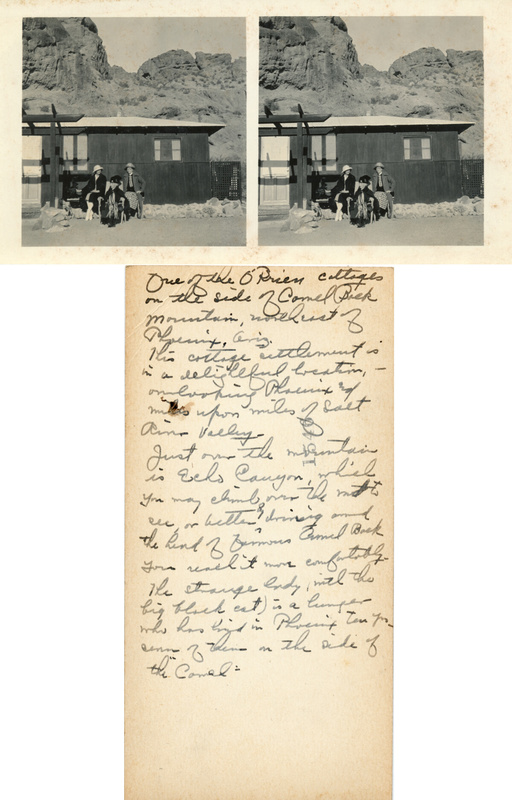 One of the O'Brien cottages
on the side of Camel Back
Mountain, northeast of
Phoenix, Ariz.
This cottage settlement is
in a delightful location, –
overlooking Phoenix &
miles upon miles of Salt
River Valley.
Just over the mountain
is Echo Canyon, which
you may climb over the mt to
see, or better driving around
the head of famous Camel Back
you reach it more comfortably.
The strange lady, with the
big black cat) is a
who has lived in Phoenix ten yrs.
seven of them on the side of
the "Camel"
1540